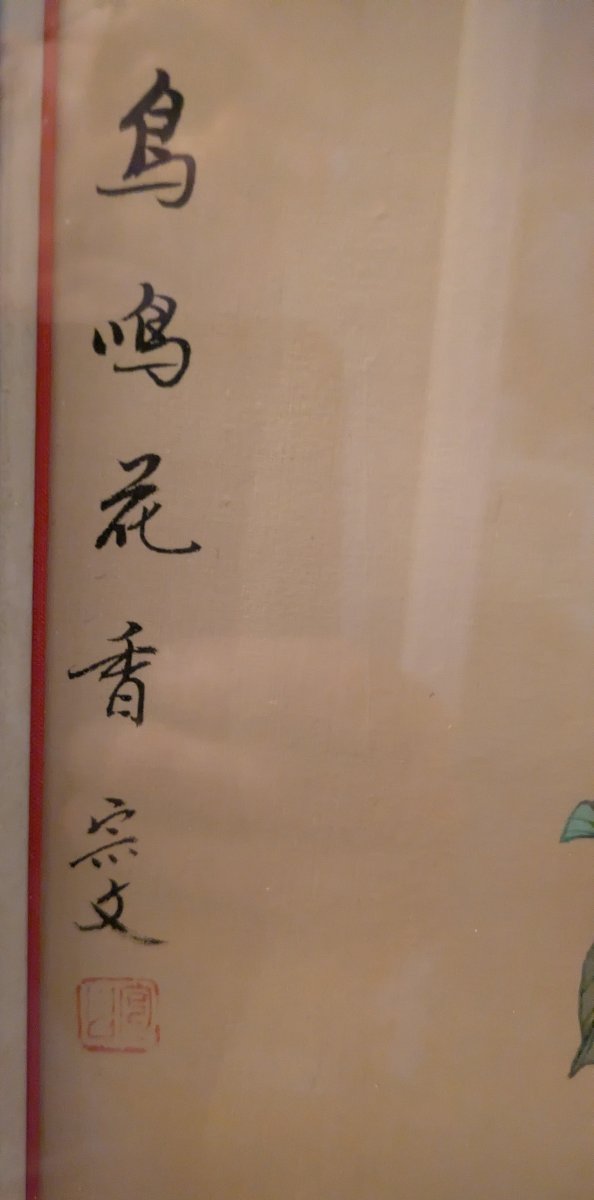 鳥鳴花香 宗文